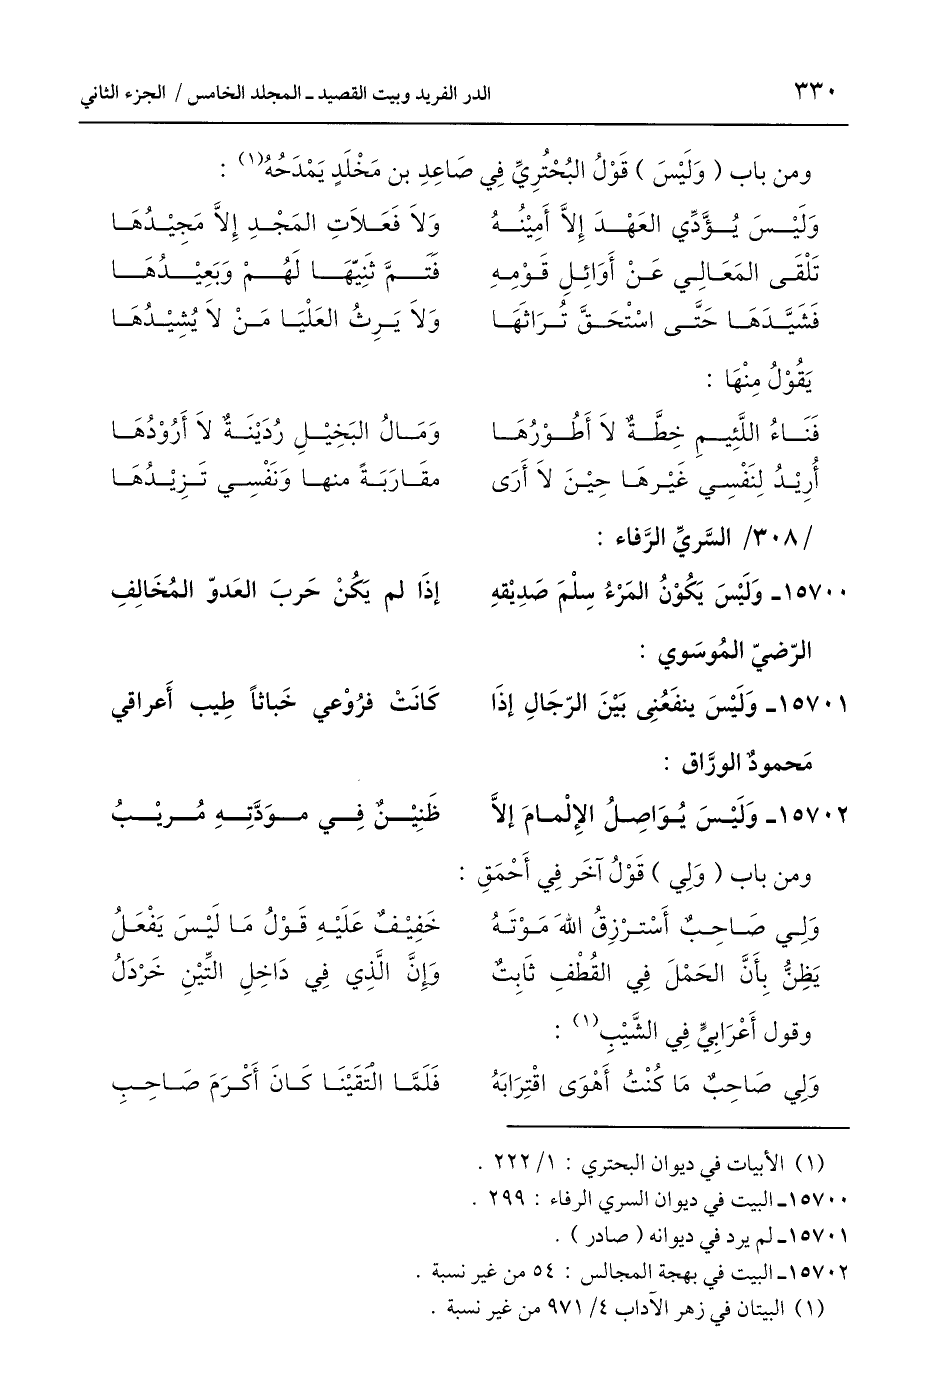 ٣٣٠ الدر الفريد وبيت القصيد ـ المجلد الخامس / الجزء الثاني
ومن باب ( وَلَيْسَ ) قَوْلُ البُحْتُرِيِّ فِي صَاعِدِ بن مَخْلَدٍ يَمْدَحُهُ(١) :
وَلَيْسَ يُؤَدِّي العَهْدَ إِلاَّ أَمِيْنُهُ وَلاَ فَعَلاَتِ المَجْدِ إِلاَّ مَجِيْدُهَا
تَلْقَى المَعَالِي عَنْ أَوَائِلِ قَوْمِهِ فَتَمَّ ثَنِيّهَا لَهُمْ وَبَعِيْدُهَا
فَشَيَّدَهَا حَتَّى اسْتَحَقَّ تُرَاثَهَا وَلاَ يَرِثُ العَلْيَا مَنْ لاَ يُشِيْدُهَا
يَقُوْلُ مِنْهَا :
فَنَاءُ اللَّئِيمِ خِطَّةٌ لاَ أَطُوْرُهَا وَمَالُ البَخِيْلِ رُدَيْنَةٌ لاَ أَرُوْدُهَا
أُرِيْدُ لِنَفْسِي غَيْرهَا حِيْنَ لاَ أَرَى مقَارَبَةً منها وَنَفْسِي تَزِيْدُهَا
/٣٠٨/ السَّريِّ الرَّفاء :
١٥٧٠٠ـ وَلَيْسَ يَكُوْنُ المَرْءُ سِلْمَ صَدِيْقهِ إذَا لم يَكُنْ حَربَ العَدوّ المُخَالِفِ
الرّضيّ المُوسَوي :
١٥٧٠١ـ وَلَيْسَ ينفَعُنِي بَيْنَ الرّجَالِ إذَا كَانَتْ فرُوْعي خَباثاً طِيب أَعراقي
مَحمودٌ الورَّاق :
١٥٧٠٢ـ وَلَيْسَ يُوَاصِلُ الإلْمامَ إلاَّ ظَنِيْنٌ فِي مودَّتِهِ مُرِيْبُ
ومن باب ( وَلِي ) قَوْلُ آخَر فِي أَحْمَقِ :
وَلِي صَاحِبٌ أَسْتَرْزِقُ اللهَ مَوْتَهُ خَفِيْفٌ عَلَيْهِ قَوْلُ مَا لَيْسَ يَفْعَلُ
يَظِنُّ بِأَنَّ الحَمْلَ فِي القُطْفِ ثَابِتٌ وَإِنَّ الَّذِي فِي دَاخِلِ التِّيْنِ خَرْدَلُ
وقول أَعْرَابِيٍّ فِي الشَّيْبِ(١) :
وَلِي صَاحِبٌ مَا كُنْتُ أَهْوَى اقْتِرَابَهُ فَلَمَّا الْتَقَيْنَا كَانَ أَكْرَمَ صَاحِبِ
(١) الأبيات في ديوان البحتري : ١/ ٢٢٢ .
١٥٧٠٠ـ البيت في ديوان السري الرفاء : ٢٩٩ .
١٥٧٠١ـ لم يرد في ديوانه ( صادر ) .
١٥٧٠٢ـ البيت في بهجة المجالس : ٥٤ من غير نسبة .
(١) البيتان في زهر الآداب ٤/ ٩٧١ من غير نسبة .